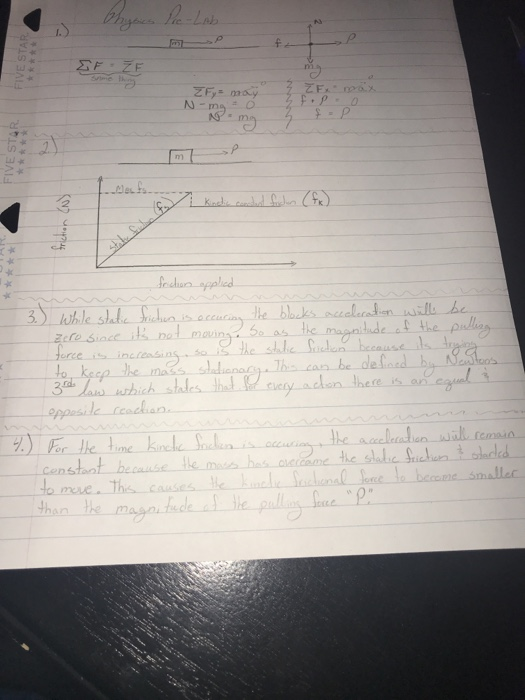 Physics Pre-Lab
1.)
m
P
N
f
P
mg
ΣF = ΣF
ΣFy = may
N - mg = 0
N = mg
ΣFx = max
f + P = 0
f = P
FIVE STAR
FIVE STAR
2.)
m
P
Max fs
static friction (fs)
Kinetic friction (fk)
friction (N)
friction applied
3.) While static friction is occuring the blocks acceleration will be
zero since it's not moving. So as the magnitude of the pulling
force is increasing, so is the static friction because its trying
to keep the mass stationary. This can be defined by Newtons
3rd law which states that for every action there is an equal &
opposite reaction.
4.) For the time kinetic friction is occuring, the acceleration will remain
constant because the mass has overcame the static friction & started
to move. This causes the kinetic frictional force to become smaller
than the magnitude of the pulling force "P."